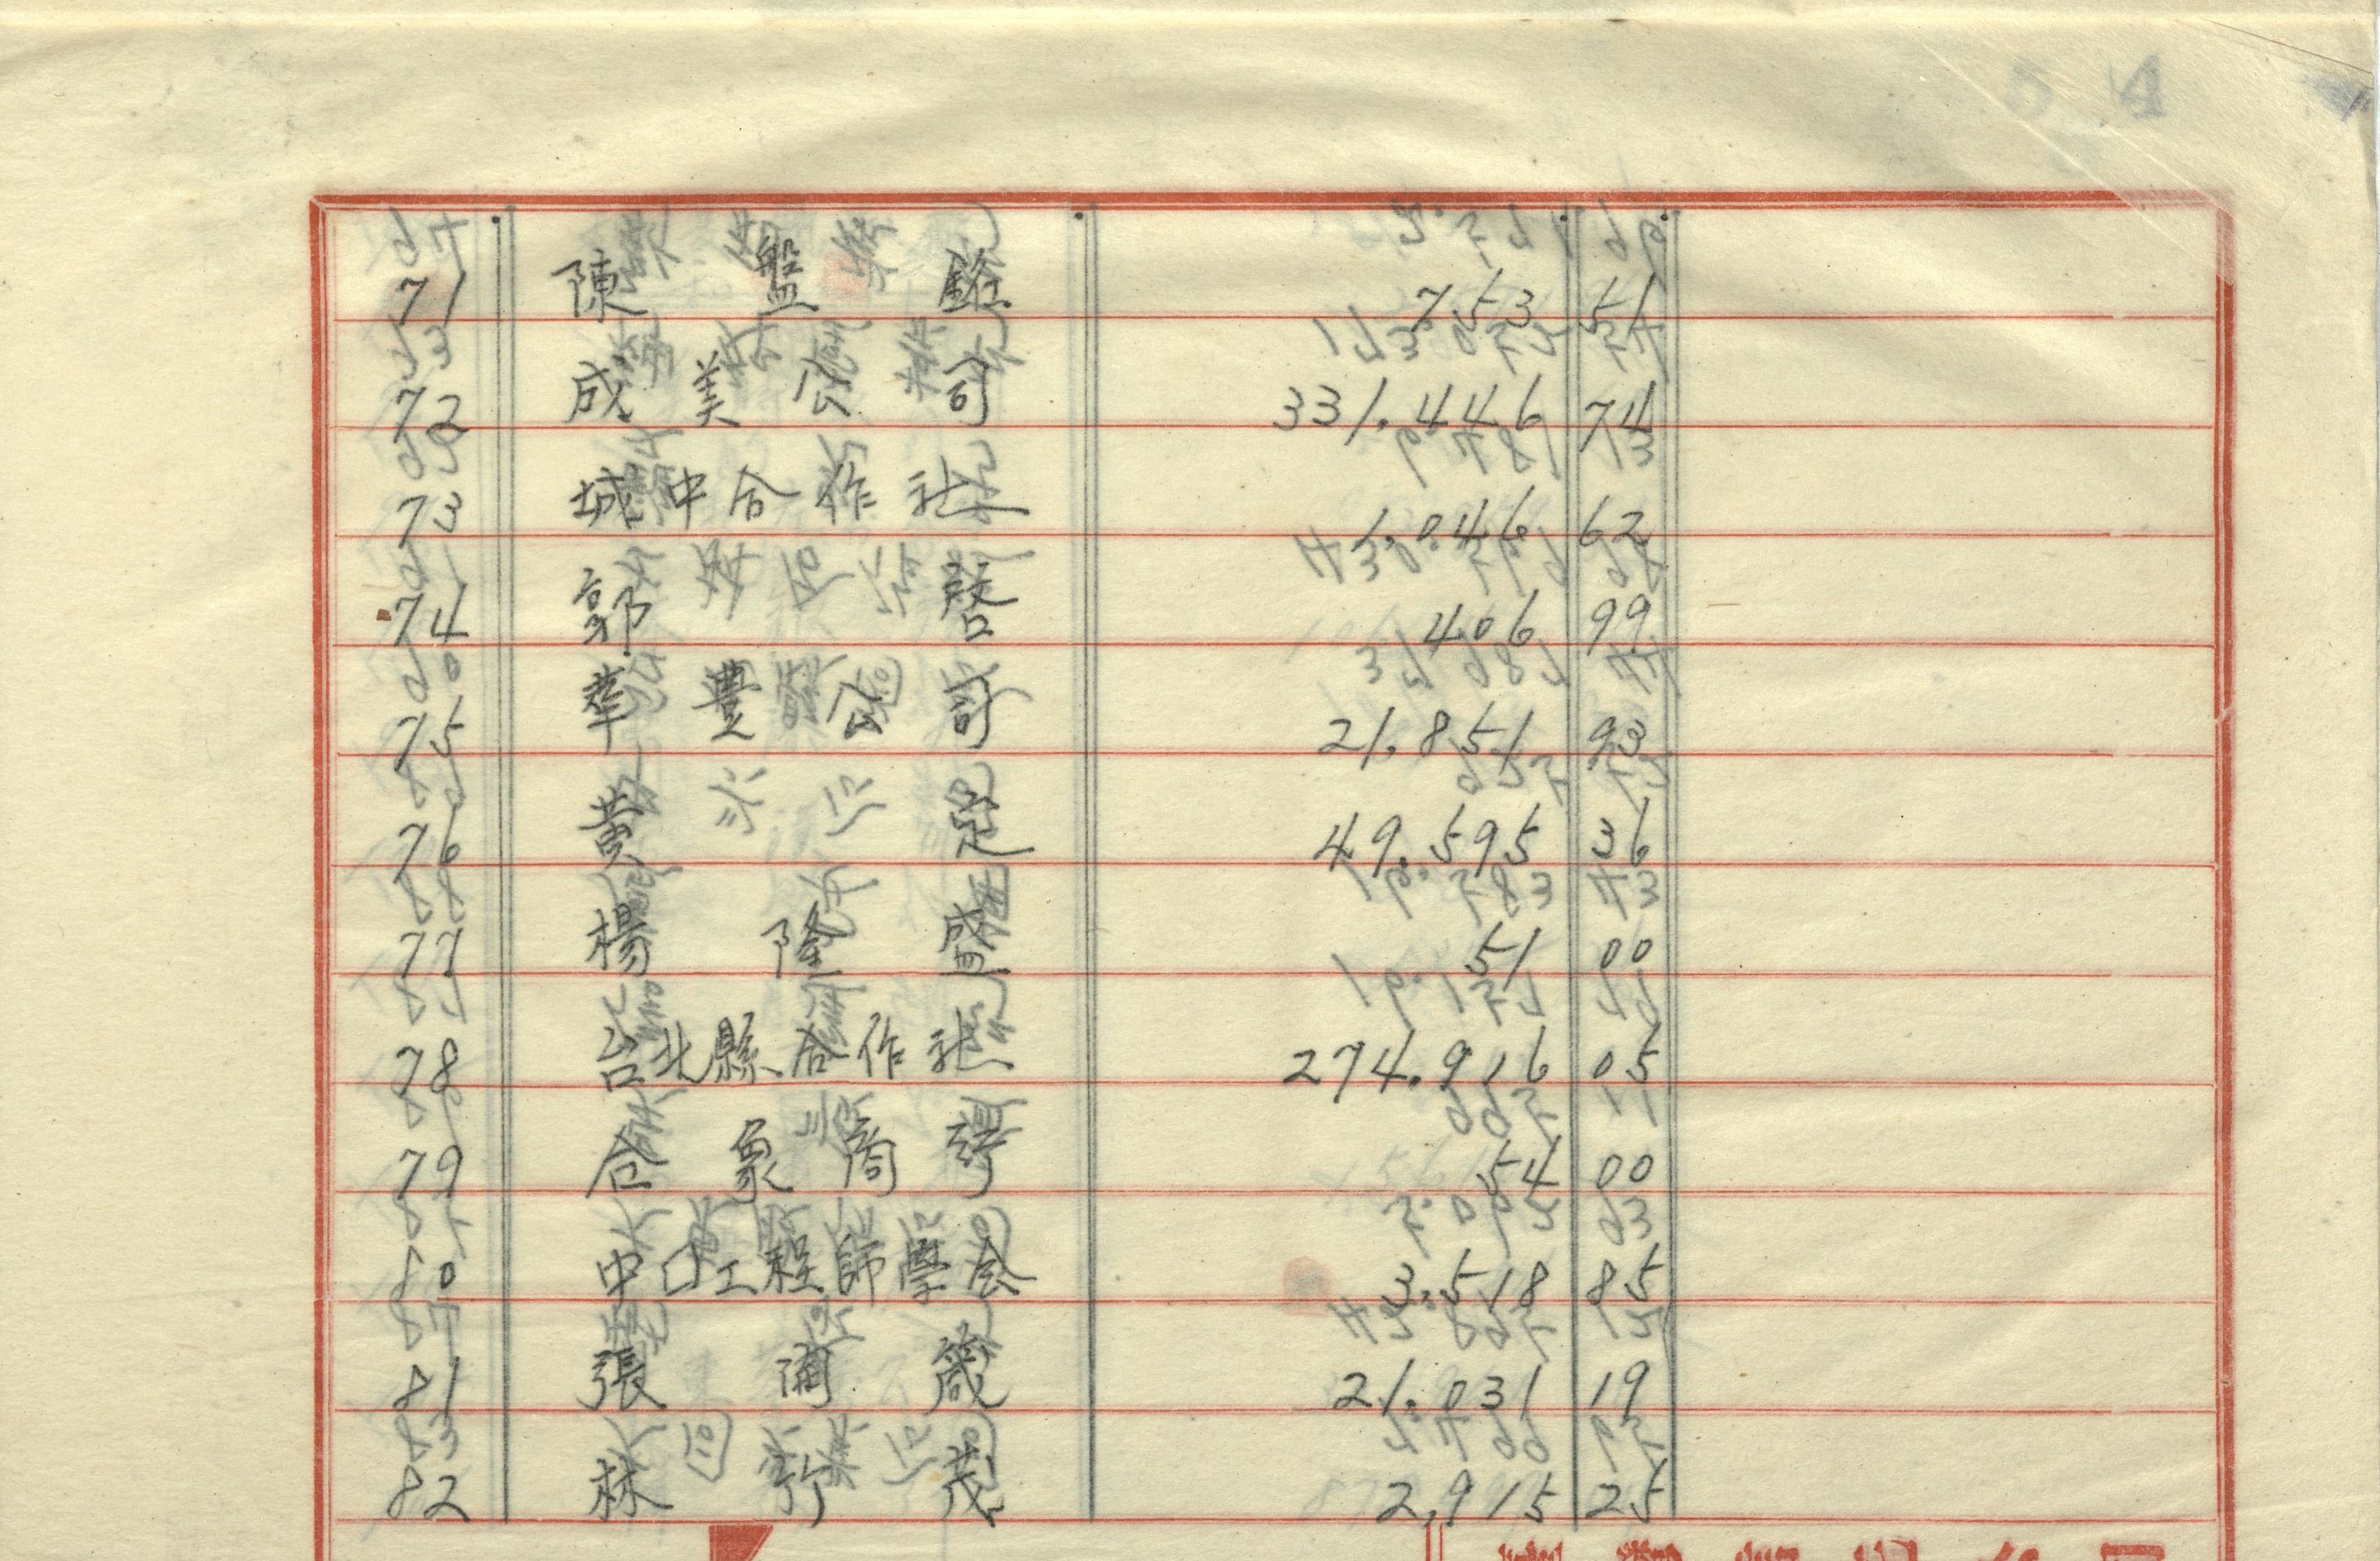 71 陳盤銘 753 51
72 成美公司 331.446 74
73 城中合作社 1.046 62
74 郭 406 99
75 華豐公司 21.851 93
76 黄定 49.595 36
77 楊隆盛 51 00
78 台北縣合作社 274.916 05
79 合象商號 54 00
80 中囗工程師學会 3.518 85
81 張蘭箴 21.031 19
82 林竹茂 2.915 25